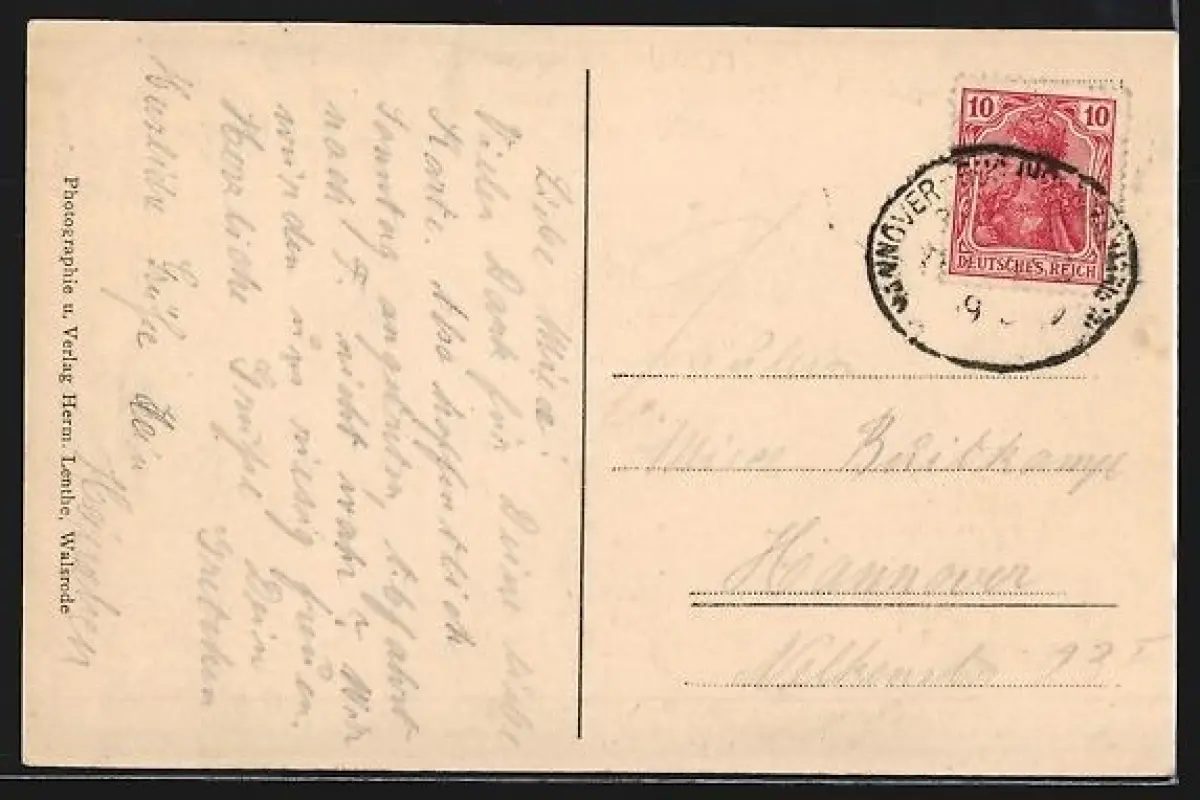 Liebe Mizi!
Vielen Dank für Deine liebe
Karte. Also hoffentlich
Sonntag angetreten, Abfahrt
nach F. nicht wahr? Wir
würden uns riesig freuen.
Herzliche Grüße Dein
Gretchen
Herzliche Grüße Dein
Photographie u. Verlag Herm. Lenthe, Walsrode
10 10
DEUTSCHES REICH
HANNOVER
Fräulein
Breitkamp
Hannover
Nelkenstr.